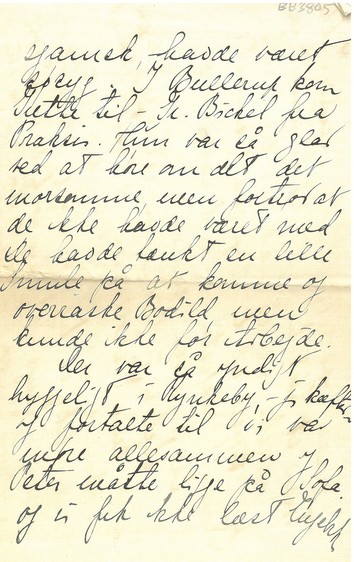 BB3805
sjamsk, havde været
I Bullerup kom
Grethe til – Fr. Bichel fra
Praksis. Hun var så glad
ved at høre om alt det
morsomme, men fortrød at
de ikke havde været med
de havde tænkt en lille
Smule på at komme og
overraske Bodild, men
kunde ikke for Arbejde.
Der var så yndigt
hyggeligt i Rynkeby, –
og fortalte til vi var
møre allesammen
Peter måtte ligge på Sofa
og vi fik ikke læst